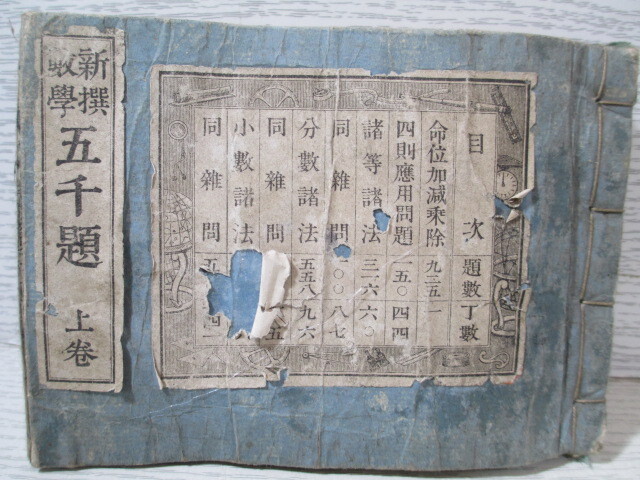 目次 題數 丁數
命位加減乘除 九二五 一
四則應用問題 一五〇 四四
諸等諸法 三一六 六〇
同雜問 〇〇 八七
分數諸法 五五八 九六
同雜問 五
小數諸法
同雜問 五
新撰
數學
五千題 上卷